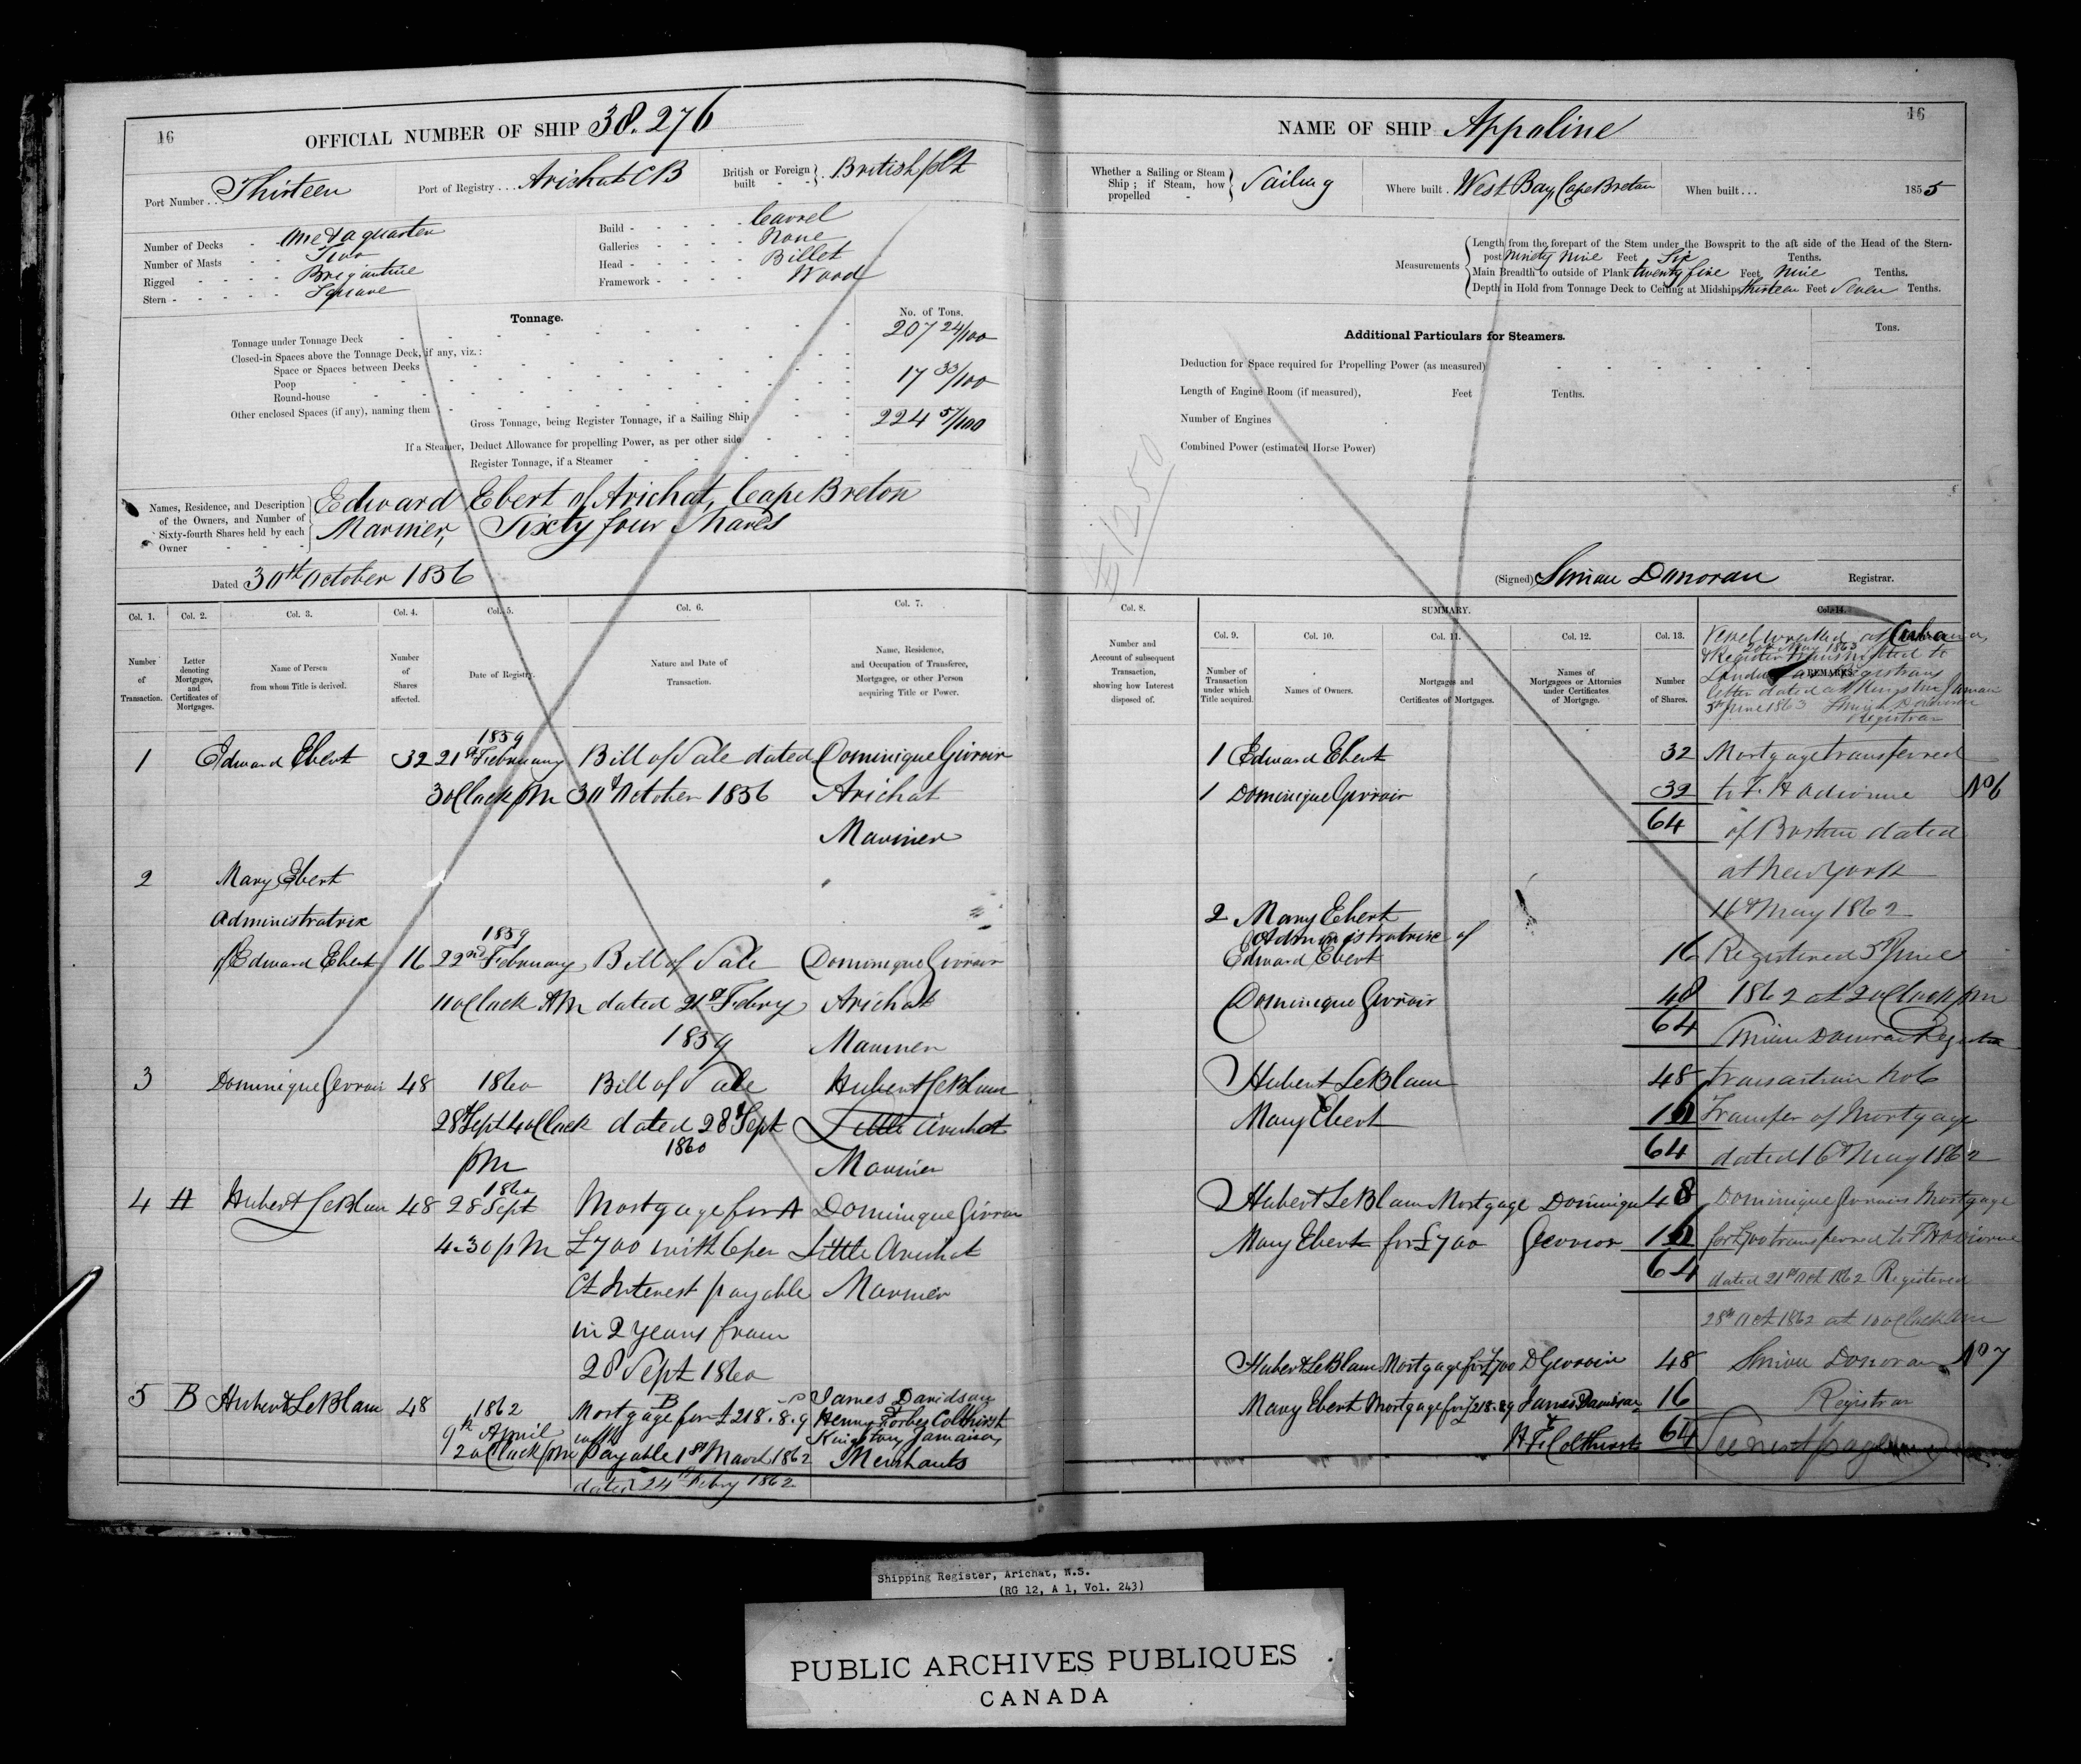 16
OFFICIAL NUMBER OF SHIP 38.276
Port Number . . . Thirteen
Port of Registry . . . Arichat CB
British or Foreign built - - } . British plt
Number of Decks - One & a quarter
Number of Masts - - Two
Rigged - - - - Brigantine
Stern - - - - - Square
Build - - - - - Carvel
Galleries - - - - None
Head - - - - - Billet
Framework - - - - Wood
Tonnage.
No. of Tons.
Tonnage under Tonnage Deck 207 24/100
Closed-in Spaces above the Tonnage Deck, if any, viz.:
Space or Spaces between Decks
Poop 17 33/100
Round-house
Other enclosed Spaces (if any), naming them
Gross Tonnage, being Register Tonnage, if a Sailing Ship 224 57/100
If a Steamer, Deduct Allowance for propelling Power, as per other side
Register Tonnage, if a Steamer
Names, Residence, and Description of the Owners, and Number of Sixty-fourth Shares held by each Owner
Edward Ebert of Arichat, Cape Breton
Mariner, Sixty four Shares
Dated 30th October 1856
Col. 1. Col. 2. Col. 3. Col. 4. Col. 5. Col. 6. Col. 7.
Number of Transaction.
Letter denoting Mortgages, and Certificates of Mortgages.
Name of Person from whom Title is derived.
Number of Shares affected.
Date of Registry.
Nature and Date of Transaction.
Name, Residence, and Occupation of Transferee, Mortgagee, or other Person acquiring Title or Power.
1859
1 Edward Ebert 32 21st February Bill of Sale dated Dominique Girroir
3 oClock pm 30th October 1856 Arichat
Mariner
2 Mary Ebert
Administratrix
1859
of Edward Ebert 16 22nd February Bill of Sale Dominique Girroir
11 oClock AM dated 21st Febry Arichat
1859 Mariner
3 Dominique Girroir 48 1860 Bill of Sale Hubert LeBlanc
28th Sept 4 oClock dated 28th Sept Little Arichat
1860
pm Mariner
1860
4 A Hubert LeBlanc 48 28 Sept Mortgage for A Dominique Girroir
4.30 pm £700 with 6 per Little Arichat
Ct Interest payable Mariner
in 2 years from
28 Sept 1860
5 B Hubert LeBlanc 48 1862 Mortgage B for £218.8.9 James Davidson
9th April with Henry Forbes Colthirst
Kingston, Jamaica,
2 oClock pm payable 1st March 1862 Merchants
dated 24th Febry 1862
16
NAME OF SHIP Appoline
Whether a Sailing or Steam Ship; if Steam, how propelled - } Sailing
Where built . West Bay, Cape Breton
When built . . . 1855
Measurements
Length from the forepart of the Stem under the Bowsprit to the aft side of the Head of the Stern-
post Ninety Nine Feet Six Tenths.
Main Breadth to outside of Plank twenty five Feet Nine Tenths.
Depth in Hold from Tonnage Deck to Ceiling at Midships thirteen Feet Seven Tenths.
Additional Particulars for Steamers.
Tons.
Deduction for Space required for Propelling Power (as measured)
Length of Engine Room (if measured), Feet Tenths.
Number of Engines
Combined Power (estimated Horse Power)
(Signed) Simion Donovan Registrar.
Col. 8.
SUMMARY.
Col. 9. Col. 10. Col. 11. Col. 12. Col. 13. Col. 14.
Number and Account of subsequent Transaction, showing how Interest disposed of.
Number of Transaction under which Title acquired.
Names of Owners.
Mortgages and Certificates of Mortgages.
Names of Mortgagees or Attornies under Certificates of Mortgage.
Number of Shares.
REMARKS.
Vessel wrecked at Cuba
20th May 1863
& Register transmitted to
London Registrars
letter dated at Kingston Jamaica
5th June 1863 Simion Donovan
Registrar
1 Edward Ebert 32
1 Dominique Girroir 32
64
2 Mary Ebert
Administratrix of
Edward Ebert 16
Dominique Girroir 48
64
Hubert LeBlanc 48
Mary Ebert 16
64
Hubert LeBlanc Mortgage Dominique 48
Mary Ebert for £700 Girroir 16
64
Hubert LeBlanc Mortgage for £700 D Girroir 48
Mary Ebert Mortgage for £218.8.9 James Davidson 16
& H F Colthirst 64
Mortgage transferred
to F. H Odiorne No 6
of Boston dated
at New York
16th May 1862
Registered 5th June
1862 at 2 oClock pm
Simion Donovan Registrar
transaction No 6
Transfer of Mortgage
dated 16th May 1862
Dominique Girroirs Mortgage
for £700 transferred to F H Odiorne
dated 21st Oct 1862 Registered
28th Oct 1862 at 10 oClock am
Simion Donovan No 7
Registrar
See next page
Shipping Register, Arichat, N.S.
(RG 12, A 1, Vol. 243)
PUBLIC ARCHIVES PUBLIQUES
CANADA